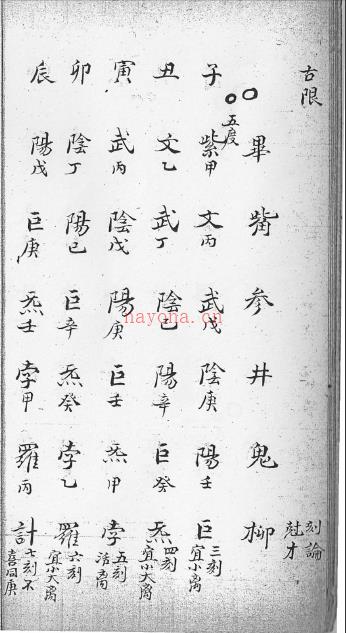 古限
畢觜参井鬼柳
刻論
尅才
子
五度
紫甲 文丙 武戊 陰庚 陽壬 巨
三刻
宜小离
丑
文乙 武丁 陰己 陽辛 巨癸 炁
四刻
宜小大离
寅
武丙 陰戊 陽庚 巨壬 炁甲 孛
五刻
活离
卯
陰丁 陽己 巨辛 炁癸 孛乙 羅
六刻
宜小大离
辰
陽戊 巨庚 炁壬 孛甲 羅丙 計
七刻不
喜同庚
nayona.cn